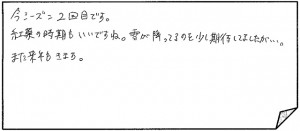 今シーズン2回目です。
紅葉の時期もいいですね。雪が降ってるのを少し期待してましたが…。
また来年もきます。